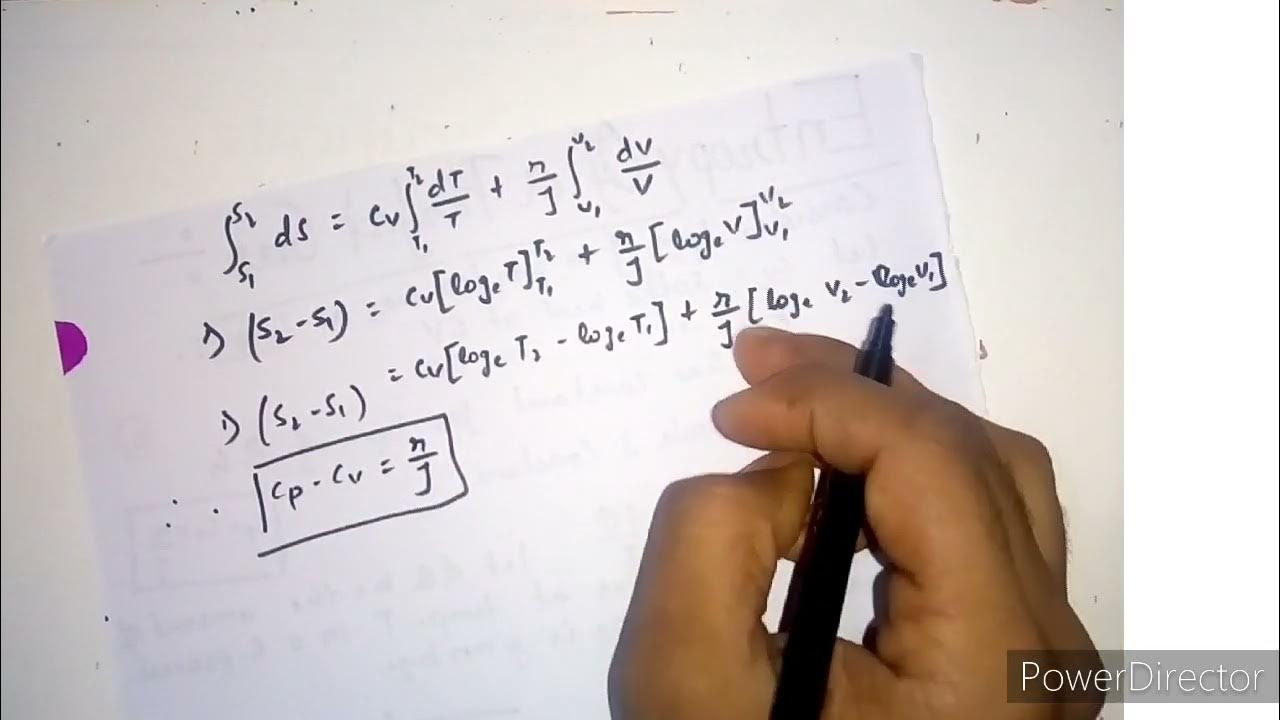 ∫_{S₁}^{S₂} ds = Cv ∫_{T₁}^{T₂} dT/T + r/J ∫_{V₁}^{V₂} dV/V
⇒ (S₂ - S₁) = Cv [logₑ T]_{T₁}^{T₂} + r/J [logₑ V]_{V₁}^{V₂}
⇒ (S₂ - S₁) = Cv [logₑ T₂ - logₑ T₁] + r/J [logₑ V₂ - logₑ V₁]
∴ Cp - Cv = r/J
PowerDirector